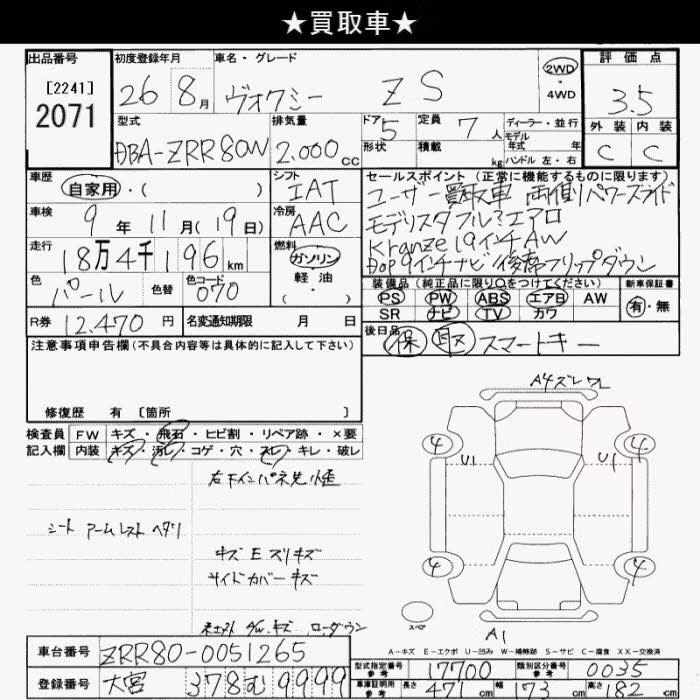 ★買取車★
出品番号
[2241]
2071
初度登録年月
26 8月
車名・グレード
ヴォクシー ZS
2WD
・
4WD
評価点
3.5
外装 内装
C C
型式
DBA-ZRR80W
排気量
2.000cc
ドア 5
形状
定員 7人
積載 kg
ディーラー・並行
モデル
年式 年
ハンドル 左・右
車歴
自家用・( )
シフト
IAT
車検
9年11月(19日)
冷房
AAC
走行
18万4千196km
燃料
ガソリン
軽油
(・)
色
パール
色替
色コード
070
R券 12.470円
名変通知期限 月 日
セールスポイント(正常に機能するものに限ります)
ユーザー買取車 両側パワースライド
モデリスタフルエアロ
Kranze19インチAW
Dop9インチナビ 後席フリップダウン
装備品(純正品に限り○をつけてください)
PS PW ABS エアB AW
SR ナビ TV カワ
新車保証書
有・無
後日品
保 取 スマートキー
注意事項申告欄(不具合内容等は具体的に記入して下さい)
修復歴 有 [箇所 ]
検査員
記入欄
FW キズ・飛石・ヒビ割・リペア跡・×要
内装 キズ・汚レ・コゲ・穴・スレ・キレ・破レ
シート アームレスト ヘタリ
キズ E スリキズ
サイドカバー キズ
ローダウン
A4ズレ
4 4
U1 U1
4 4
スペア
A1
A-キズ E-エクボ U-凹み W-補修跡 S-サビ C-腐食 XX-交換済
車台番号 ZRR80-0051265
登録番号 大宮 378む9999
型式指定番号
参考
17700
類別区分番号
参考
0035
車庫証明用
参考
長さ 471cm
幅 173cm
高さ 182cm